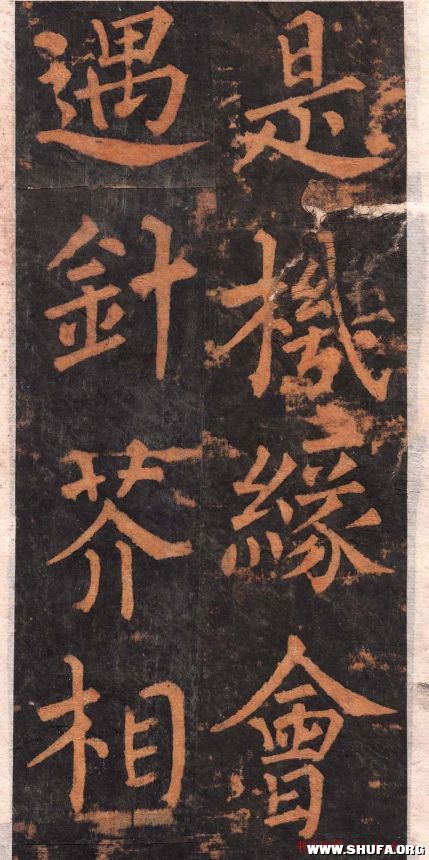 是機緣會
遇針芥相
WWW.SHUFA.ORG